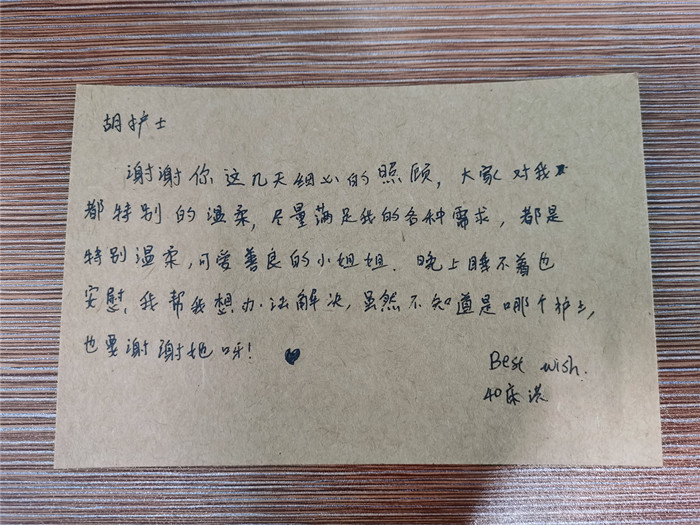 胡护士
谢谢你这几天细心的照顾，大家对我
都特别的温柔，尽量满足我的各种需求，都是
特别温柔，可爱善良的小姐姐．晚上睡不着也
安慰，我帮我想办法解决，虽然不知道是哪个护士，
也要谢谢她呀！
Best wish.
40床洪